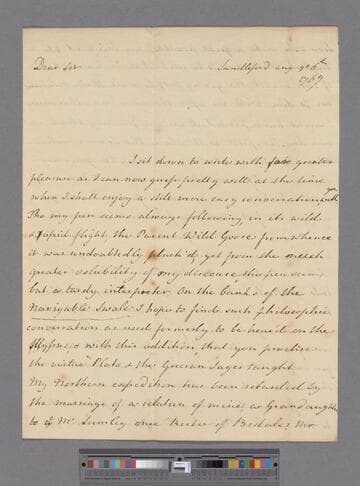 Dear Sir Sandleford aug ye 6th
1769
I sit down to write with far greater
pleasure as I can now guess pretty well at the time
when I shall enjoy a still more easy conversation with you
Tho my pen seems always following in its wild
& rapid flight the Parent Wild Goose from whence
it was undoubtedly pluck'd, yet from the much
greater volubility of my discourse the pen seems
but a tardy interpreter. On the banks of the
Navigable Swale I hope to find such philosophic
conversation as used formerly to be heard on the
Illyssus, & with this addition, that you practice
the virtue Plato & the Grecian Sages taught
My Northern expedition has been retarded by
the marriage of a relation of mine, a Grand daughter
to ye Mr Lumley once Rector of Bedale. Mr